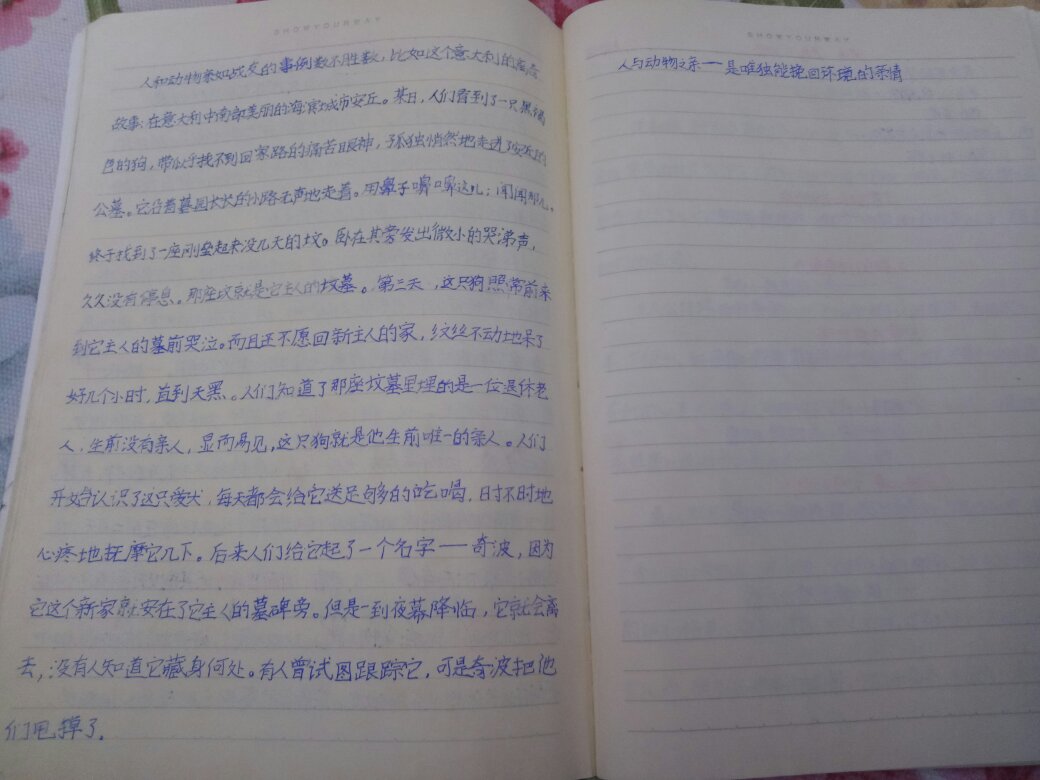 SHOWYOURWAY
人和动物亲如战友的事例数不胜数，比如这个意大利的
故事：在意大利中南部美丽的海滨城市安丘。某日，人们看到了一只黑褐
色的狗，带似乎找不到回家路的痛苦眼神，孤独悄然地走进了安丘的
公墓。它沿着墓园长长的小路无声地走着。用鼻子嗅嗅这儿；闻闻那儿。
终于找到了一座刚垒起来没几天的坟。卧在其旁发出微小的哭涕声，
久久没有停息。那座坟就是它主人的坟墓。第三天，这只狗照常前来
到它主人的墓前哭泣。而且还不愿回新主人的家，纹丝不动地呆了
好几个小时，直到天黑。人们知道了那座坟墓里埋的是一位退休老
人，生前没有亲人，显而易见，这只狗就是他生前唯一的亲人。人们
开始认识了这只爱犬，每天都会给它送足够多的吃喝，时不时地
心疼地抚摩它几下。后来人们给它起了一个名字——奇波，因为
它这个新家就安在了它主人的墓碑旁。但是一到夜幕降临，它就会离
去，没有人知道它藏身何处。有人曾试图跟踪它，可是奇波把他
们甩掉了。
SHOWYOURWAY
人与动物之亲——是唯独能挽回环境的亲情